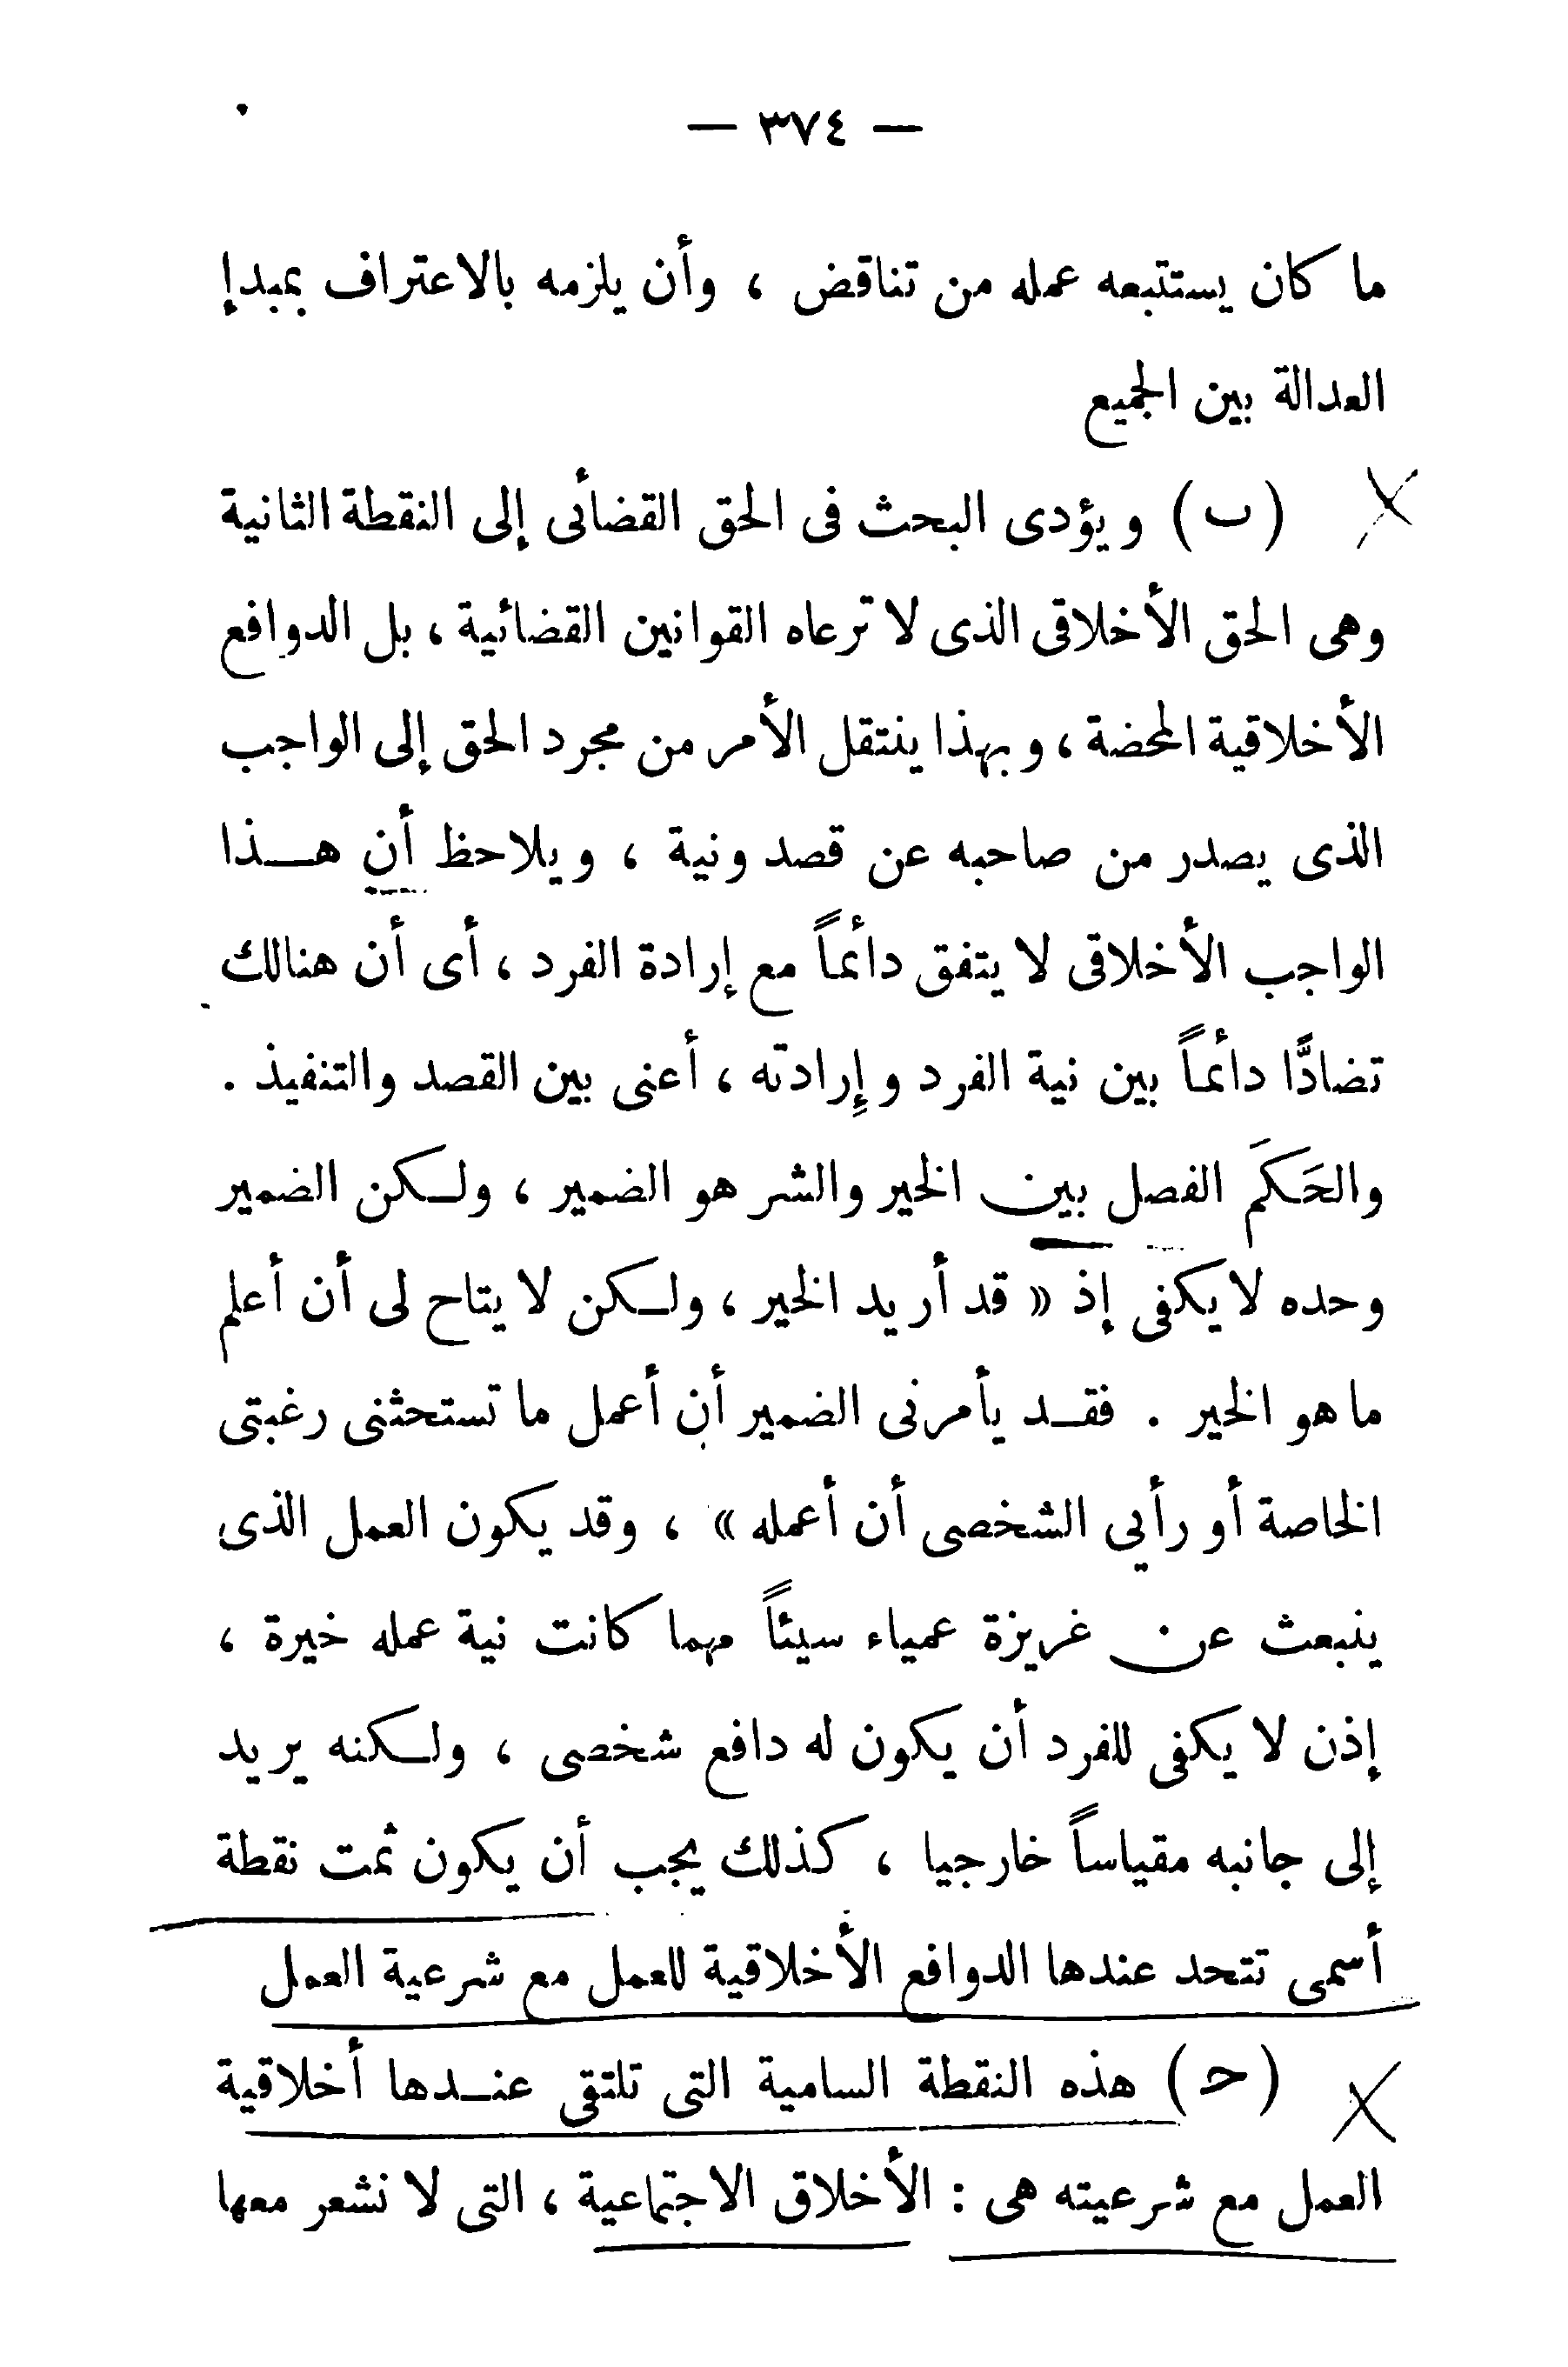 — ٣٧٤ —
ما كان يستتبعه عمله من تناقض ، وأن يلزمه بالاعتراف بمبدإ
العدالة بين الجميع
(ب) ويؤدى البحث فى الحق القضائى إلى النقطة الثانية
وهى الحق الأخلاقى الذى لا ترعاه القوانين القضائية ، بل الدوافع
الأخلاقية المحضة ، وبهذا ينتقل الأمر من مجرد الحق إلى الواجب
الذى يصدر من صاحبه عن قصد ونية ، ويلاحظ أن هـذا
الواجب الأخلاقى لا يتفق دائماً مع إرادة الفرد ، أى أن هنالك
تضادًّا دائماً بين نية الفرد وإرادته ، أعنى بين القصد والتنفيذ .
والحَكَم الفصل بين الخير والشر هو الضمير ، ولـكن الضمير
وحده لا يكفى إذ « قد أريد الخير ، ولـكن لا يتاح لى أن أعلم
ما هو الخير . فقـد يأمرنى الضمير أن أعمل ما تستحثنى رغبتى
الخاصة أو رأيي الشخصى أن أعمله » ، وقد يكون العمل الذى
ينبعث عن غريزة عمياء سيئاً مهما كانت نية عمله خيرة ،
إذن لا يكفى للفرد أن يكون له دافع شخصى ، ولـكنه يريد
إلى جانبه مقياساً خارجيا ، كذلك يجب أن يكون ثمت نقطة
أسمى تتحد عندها الدوافع الأخلاقية للعمل مع شرعية العمل
(حـ) هذه النقطة السامية التى تلتقى عنـدها أخلاقية
العمل مع شرعيته هى : الأخلاق الاجتماعية ، التى لا نشعر معها